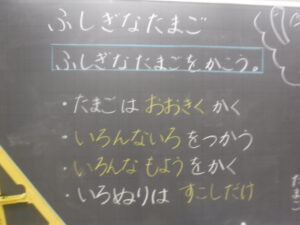 ふしぎなたまご
ふしぎなたまごをかこう。
・たまごは おおきく かく
・いろんないろをつかう
・いろんな もようをかく
・いろぬりは すこしだけ
たまご